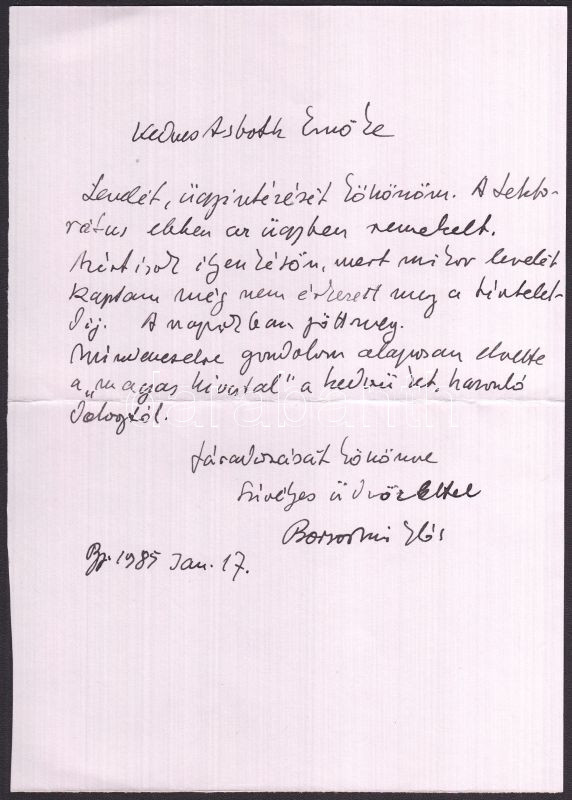 Kedves Asboth Emőke
Levelét, ügyintézését köszönöm. A Lekto-
rátus ebben az ügyben remekelt.
Azért írok ilyen későn, mert mikor levelét
kaptam még nem érkezett meg a tisztelet-
díj. A napokban jött meg.
Mindenesetre gondolom alaposan elvette
a "magas hivatal" a kedvüket, hasonló
dologtól.
Fáradozását köszönve
Szívélyes üdvözlettel
Bp. 1985 Jan. 17.